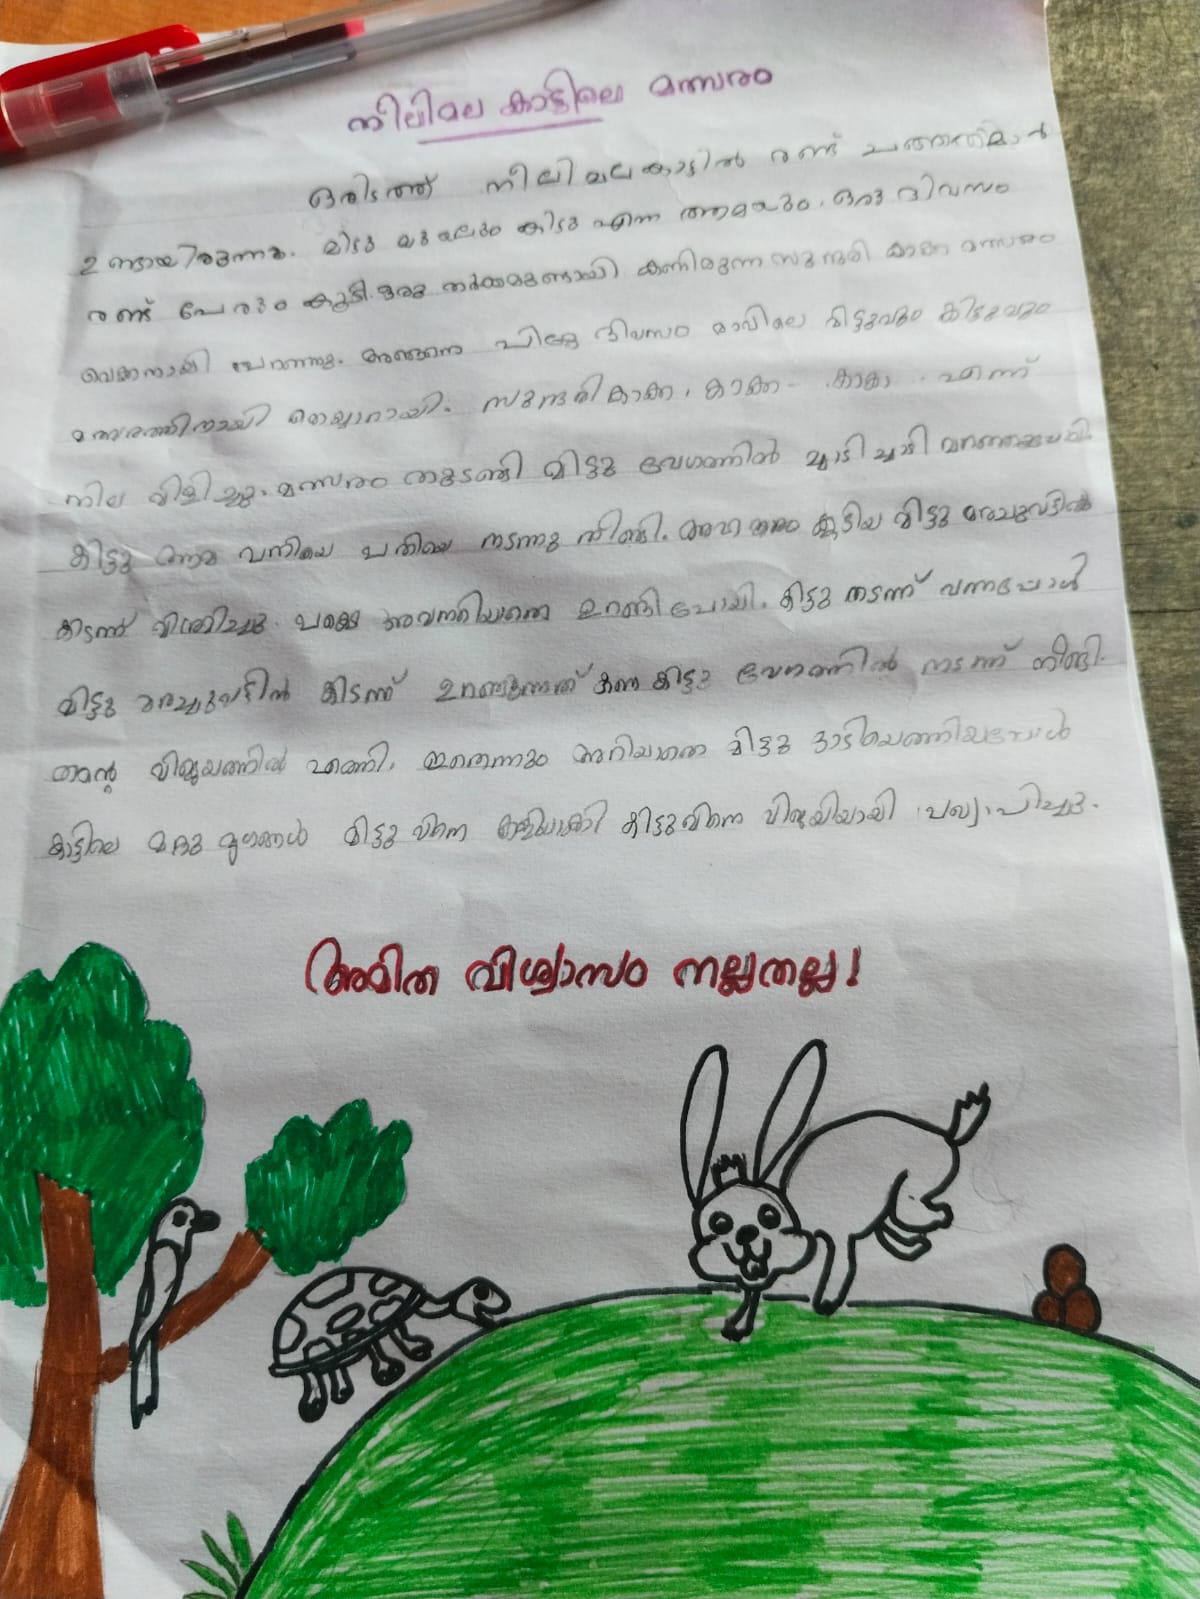 നീലിമല കാട്ടിലെ മത്സരം
ഒരിടത്ത് നീലിമലകാട്ടിൽ രണ്ട് ചങ്ങാതിമാർ
ഉണ്ടായിരുന്നു. മിട്ടു മുയലും കിട്ടു എന്ന ആമയും. ഒരു ദിവസം
രണ്ട് പേരും കൂടി ഒരു തർക്കമുണ്ടായി കണ്ടിരുന്ന സുന്ദരി കാക്ക മത്സരം
വെക്കാനായി പറഞ്ഞു. അങ്ങനെ പിറ്റേ ദിവസം രാവിലെ മിട്ടുവും കിട്ടുവും
മത്സരത്തിനായി തയ്യാറായി. സുന്ദരികാക്ക, കാക്ക - കാക്കാ എന്ന്
നില വിളിച്ചു. മത്സരം തുടങ്ങി മിട്ടു വേഗത്തിൽ ചാടി ചാടി
കിട്ടു ആമ പതിയെ നടന്നു നീങ്ങി. കൂടിയ മിട്ടു മരചുവട്ടിൽ
കിടന്ന് വിശ്രമിച്ചു. പക്ഷെ അവനറിയാതെ ഉറങ്ങി പോയി. കിട്ടു നടന്ന് വന്നപ്പോൾ
മിട്ടു മരച്ചുവട്ടിൽ കിടന്ന് ഉറങ്ങുന്നത് കണ്ട കിട്ടു വേഗത്തിൽ നടന്ന് നീങ്ങി.
തന്റെ വിജയത്തിൽ എത്തി. ഇതൊന്നും അറിയാതെ മിട്ടു ഓടിയെത്തിയപ്പോൾ
കാട്ടിലെ മറ്റു മൃഗങ്ങൾ മിട്ടു വിനെ കളിയാക്കി കിട്ടുവിനെ വിജയിയായി പ്രഖ്യാപിച്ചു.
അമിത വിശ്വാസം നല്ലതല്ല!